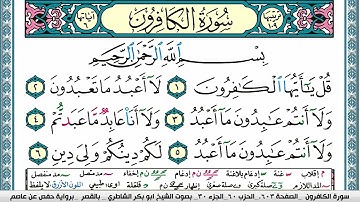 سُورَةُ الْكَافِرُونَ
بِسْمِ اللَّهِ الرَّحْمَٰنِ الرَّحِيمِ
قُلْ يَٰٓأَيُّهَا ٱلْكَٰفِرُونَ ١ لَآ أَعْبُدُ مَا تَعْبُدُونَ ٢
وَلَآ أَنتُمْ عَٰبِدُونَ مَآ أَعْبُدُ ٣ وَلَآ أَنَا۠ عَابِدٌ مَّا عَبَدتُّمْ ٤
وَلَآ أَنتُمْ عَٰبِدُونَ مَآ أَعْبُدُ ٥ لَكُمْ دِينُكُمْ وَلِىَ دِينِ ٦
سورة الكافرون الصفحة ٦٠٣ الحزب ٦٠ الجزء ٣٠ بصوت الشيخ ابو بكر الشاطري بالقصر برواية حفص عن عاصم